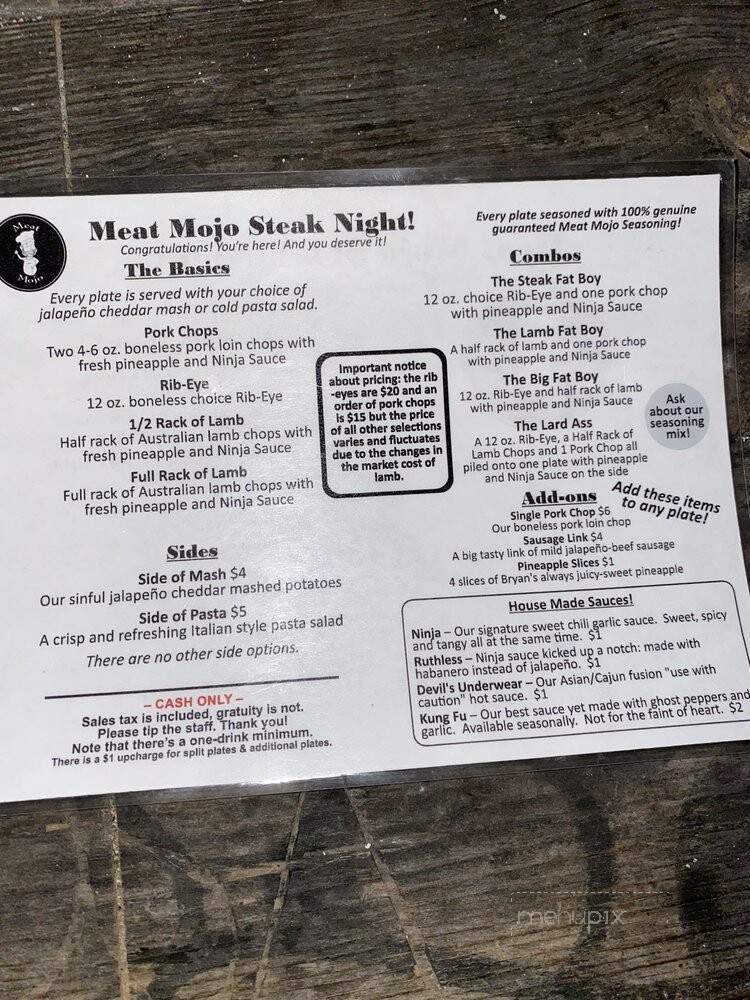 Meat
Mojo
Meat Mojo Steak Night!
Congratulations! You're here! And you deserve it!
The Basics
Every plate is served with your choice of
jalapeño cheddar mash or cold pasta salad.
Pork Chops
Two 4-6 oz. boneless pork loin chops with
fresh pineapple and Ninja Sauce
Rib-Eye
12 oz. boneless choice Rib-Eye
1/2 Rack of Lamb
Half rack of Australian lamb chops with
fresh pineapple and Ninja Sauce
Full Rack of Lamb
Full rack of Australian lamb chops with
fresh pineapple and Ninja Sauce
Sides
Side of Mash $4
Our sinful jalapeño cheddar mashed potatoes
Side of Pasta $5
A crisp and refreshing Italian style pasta salad
There are no other side options.
– CASH ONLY –
Sales tax is included, gratuity is not.
Please tip the staff. Thank you!
Note that there's a one-drink minimum.
There is a $1 upcharge for split plates & additional plates.
Important notice
about pricing: the rib
-eyes are $20 and an
order of pork chops
is $15 but the price
of all other selections
varies and fluctuates
due to the changes in
the market cost of
lamb.
Every plate seasoned with 100% genuine
guaranteed Meat Mojo Seasoning!
Combos
The Steak Fat Boy
12 oz. choice Rib-Eye and one pork chop
with pineapple and Ninja Sauce
The Lamb Fat Boy
A half rack of lamb and one pork chop
with pineapple and Ninja Sauce
The Big Fat Boy
12 oz. Rib-Eye and half rack of lamb
with pineapple and Ninja Sauce
The Lard Ass
A 12 oz. Rib-Eye, a Half Rack of
Lamb Chops and 1 Pork Chop all
piled onto one plate with pineapple
and Ninja Sauce on the side
Ask
about our
seasoning
mix!
Add-ons
Add these items
to any plate!
Single Pork Chop $6
Our boneless pork loin chop
Sausage Link $4
A big tasty link of mild jalapeño-beef sausage
Pineapple Slices $1
4 slices of Bryan's always juicy-sweet pineapple
House Made Sauces!
Ninja – Our signature sweet chili garlic sauce. Sweet, spicy
and tangy all at the same time. $1
Ruthless – Ninja sauce kicked up a notch: made with
habanero instead of jalapeño. $1
Devil's Underwear – Our Asian/Cajun fusion "use with
caution" hot sauce. $1
Kung Fu – Our best sauce yet made with ghost peppers and
garlic. Available seasonally. Not for the faint of heart. $2
menupix